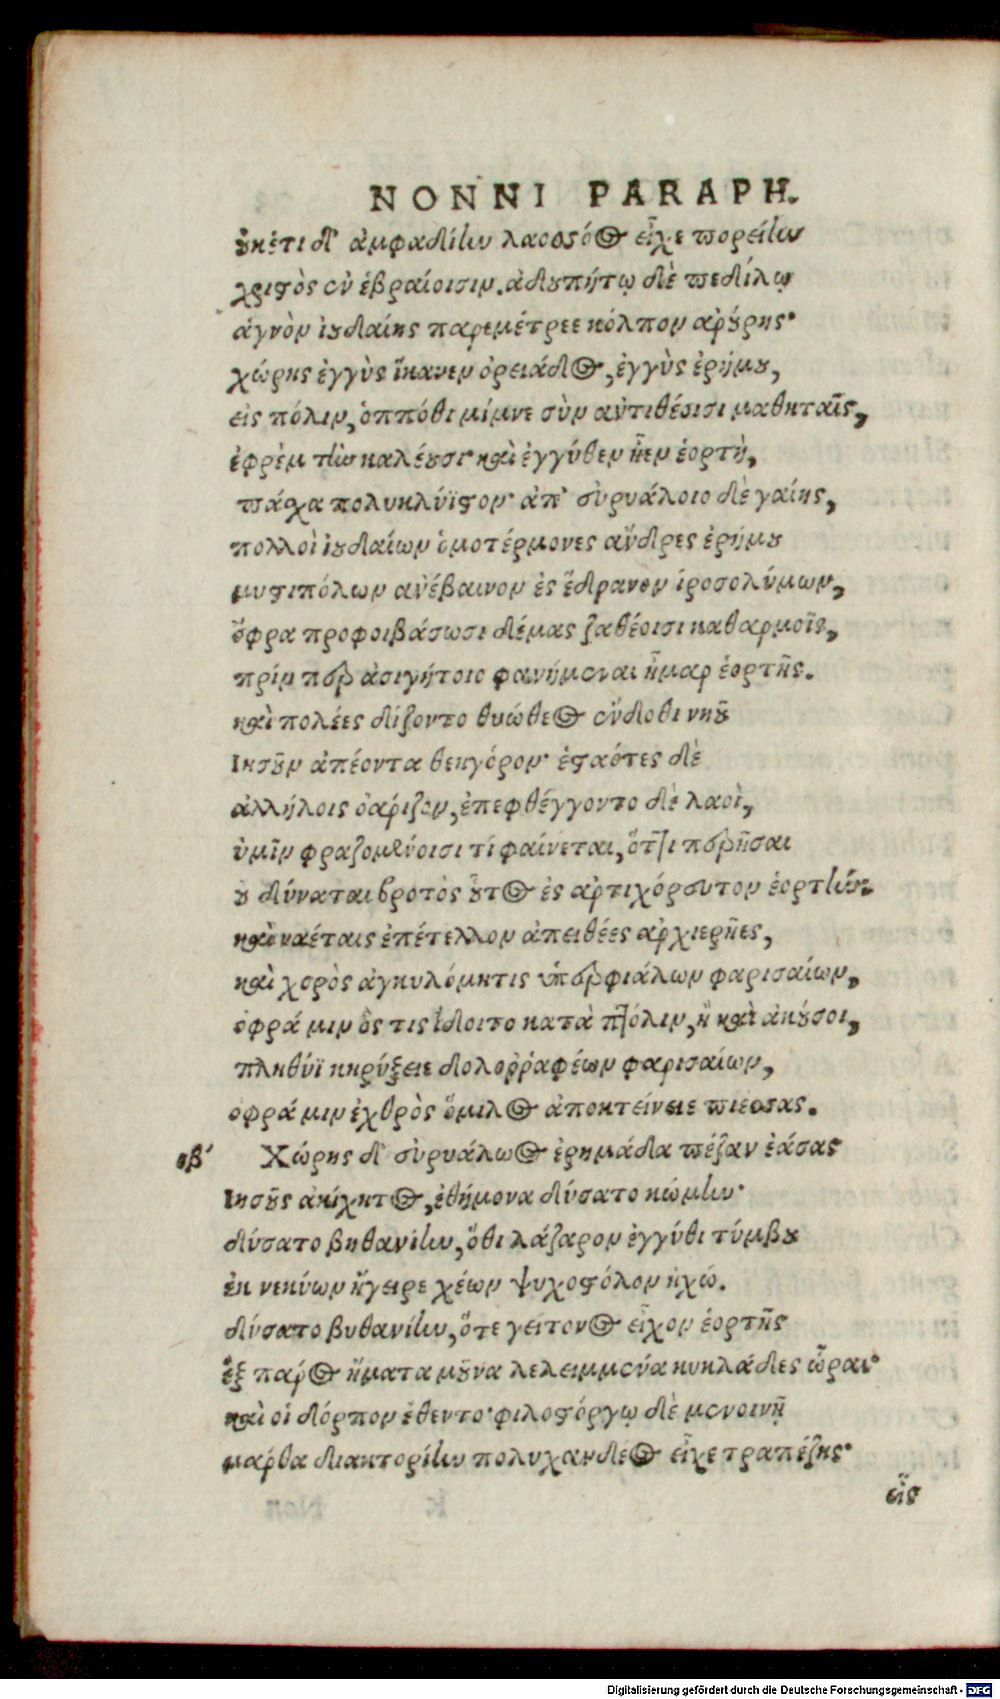 NONNI PARAPH.
οὐκέτι δ' ἀμφαδίην λαοσσόος εἶχε πορείην
χριστὸς ἐν ἑβραίοισιν. ἀδουπήτῳ δὲ πεδίλῳ
ἁγνὸν ἰουδαίης παρεμέτρεε κόλπον ἀρούρης·
χώρης ἐγγὺς ἵκανεν ὀρειάδος, ἐγγὺς ἐρήμου,
εἰς πόλιν, ὁππόθι μίμνε σὺν ἀντιθέοισι μαθηταῖς,
ἐφρὲμ τὴν καλέουσι· καὶ ἐγγύθεν ἦεν ἑορτὴ,
πάχα πολυκλύϊστον· ἀπ' εὐρυάλοιο δὲ γαίης,
πολλοὶ ἰουδαίων ὁμοτέρμονες ἄνδρες ἐρήμου
μυστιπόλων ἀνέβαινον ἐς ἕδρανον ἱροσολύμων,
ὄφρα προφοιβάσωσι δέμας ζαθέοισι καθαρμοῖς,
πρίν περ ἀσιγήτοιο φανήμεναι ἦμαρ ἑορτῆς.
καὶ πολέες δίζοντο θυώδεος ἔνδοθι νηοῦ
Ἰησοῦν ἀπέοντα θεηγόρον· ἑσταότες δὲ
ἀλλήλοις ὀάριζον, ἐπεφθέγγοντο δὲ λαοὶ,
ὑμῖν φραζομένοισι τί φαίνεται, ὅττι περῆσαι
οὐ δύναται βροτὸς οὗτος ἐς ἀρτιχόρευτον ἑορτήν.
καὶ ναέταις ἐπέτελλον ἀπειθέες ἀρχιερῆες,
καὶ χορὸς ἀγκυλόμητις ὑπερφιάλων φαρισαίων,
ὀφρά μιν ὅς τις ἴδοιτο κατὰ πτόλιν, ἢ καὶ ἀκούσοι,
πληθύϊ κηρύξειε δολορῤαφέων φαρισαίων,
ὀφρά μιν ἐχθρὸς ὅμιλος ἀποκτείνειε πιέσας.
οβ' Χώρης δ' εὐρυάλωος ἐρημάδα πέζαν ἐάσας
Ἰησοῦς ἀκίχητος, ἐθήμονα δύσατο κώμην·
δύσατο βηθανίην, ὅθι λάζαρον ἐγγύθι τύμβου
ἐκ νεκύων ἤγειρε χέων ψυχοστόλον ἠχώ.
δύσατο βυθανίην, ὅτε γείτονος εἶχον ἑορτῆς
ἓξ πάρος ἤματα μοῦνα λελειμμένα κυκλάδες ὧραι·
καὶ οἱ δόρπον ἔθεντο· φιλοστόργῳ δὲ μενοινῇ
μάρθα διακτορίην πολυχανδέος εἶχε τραπέζης·
εἷς
Digitalisierung gefördert durch die Deutsche Forschungsgemeinschaft - DFG